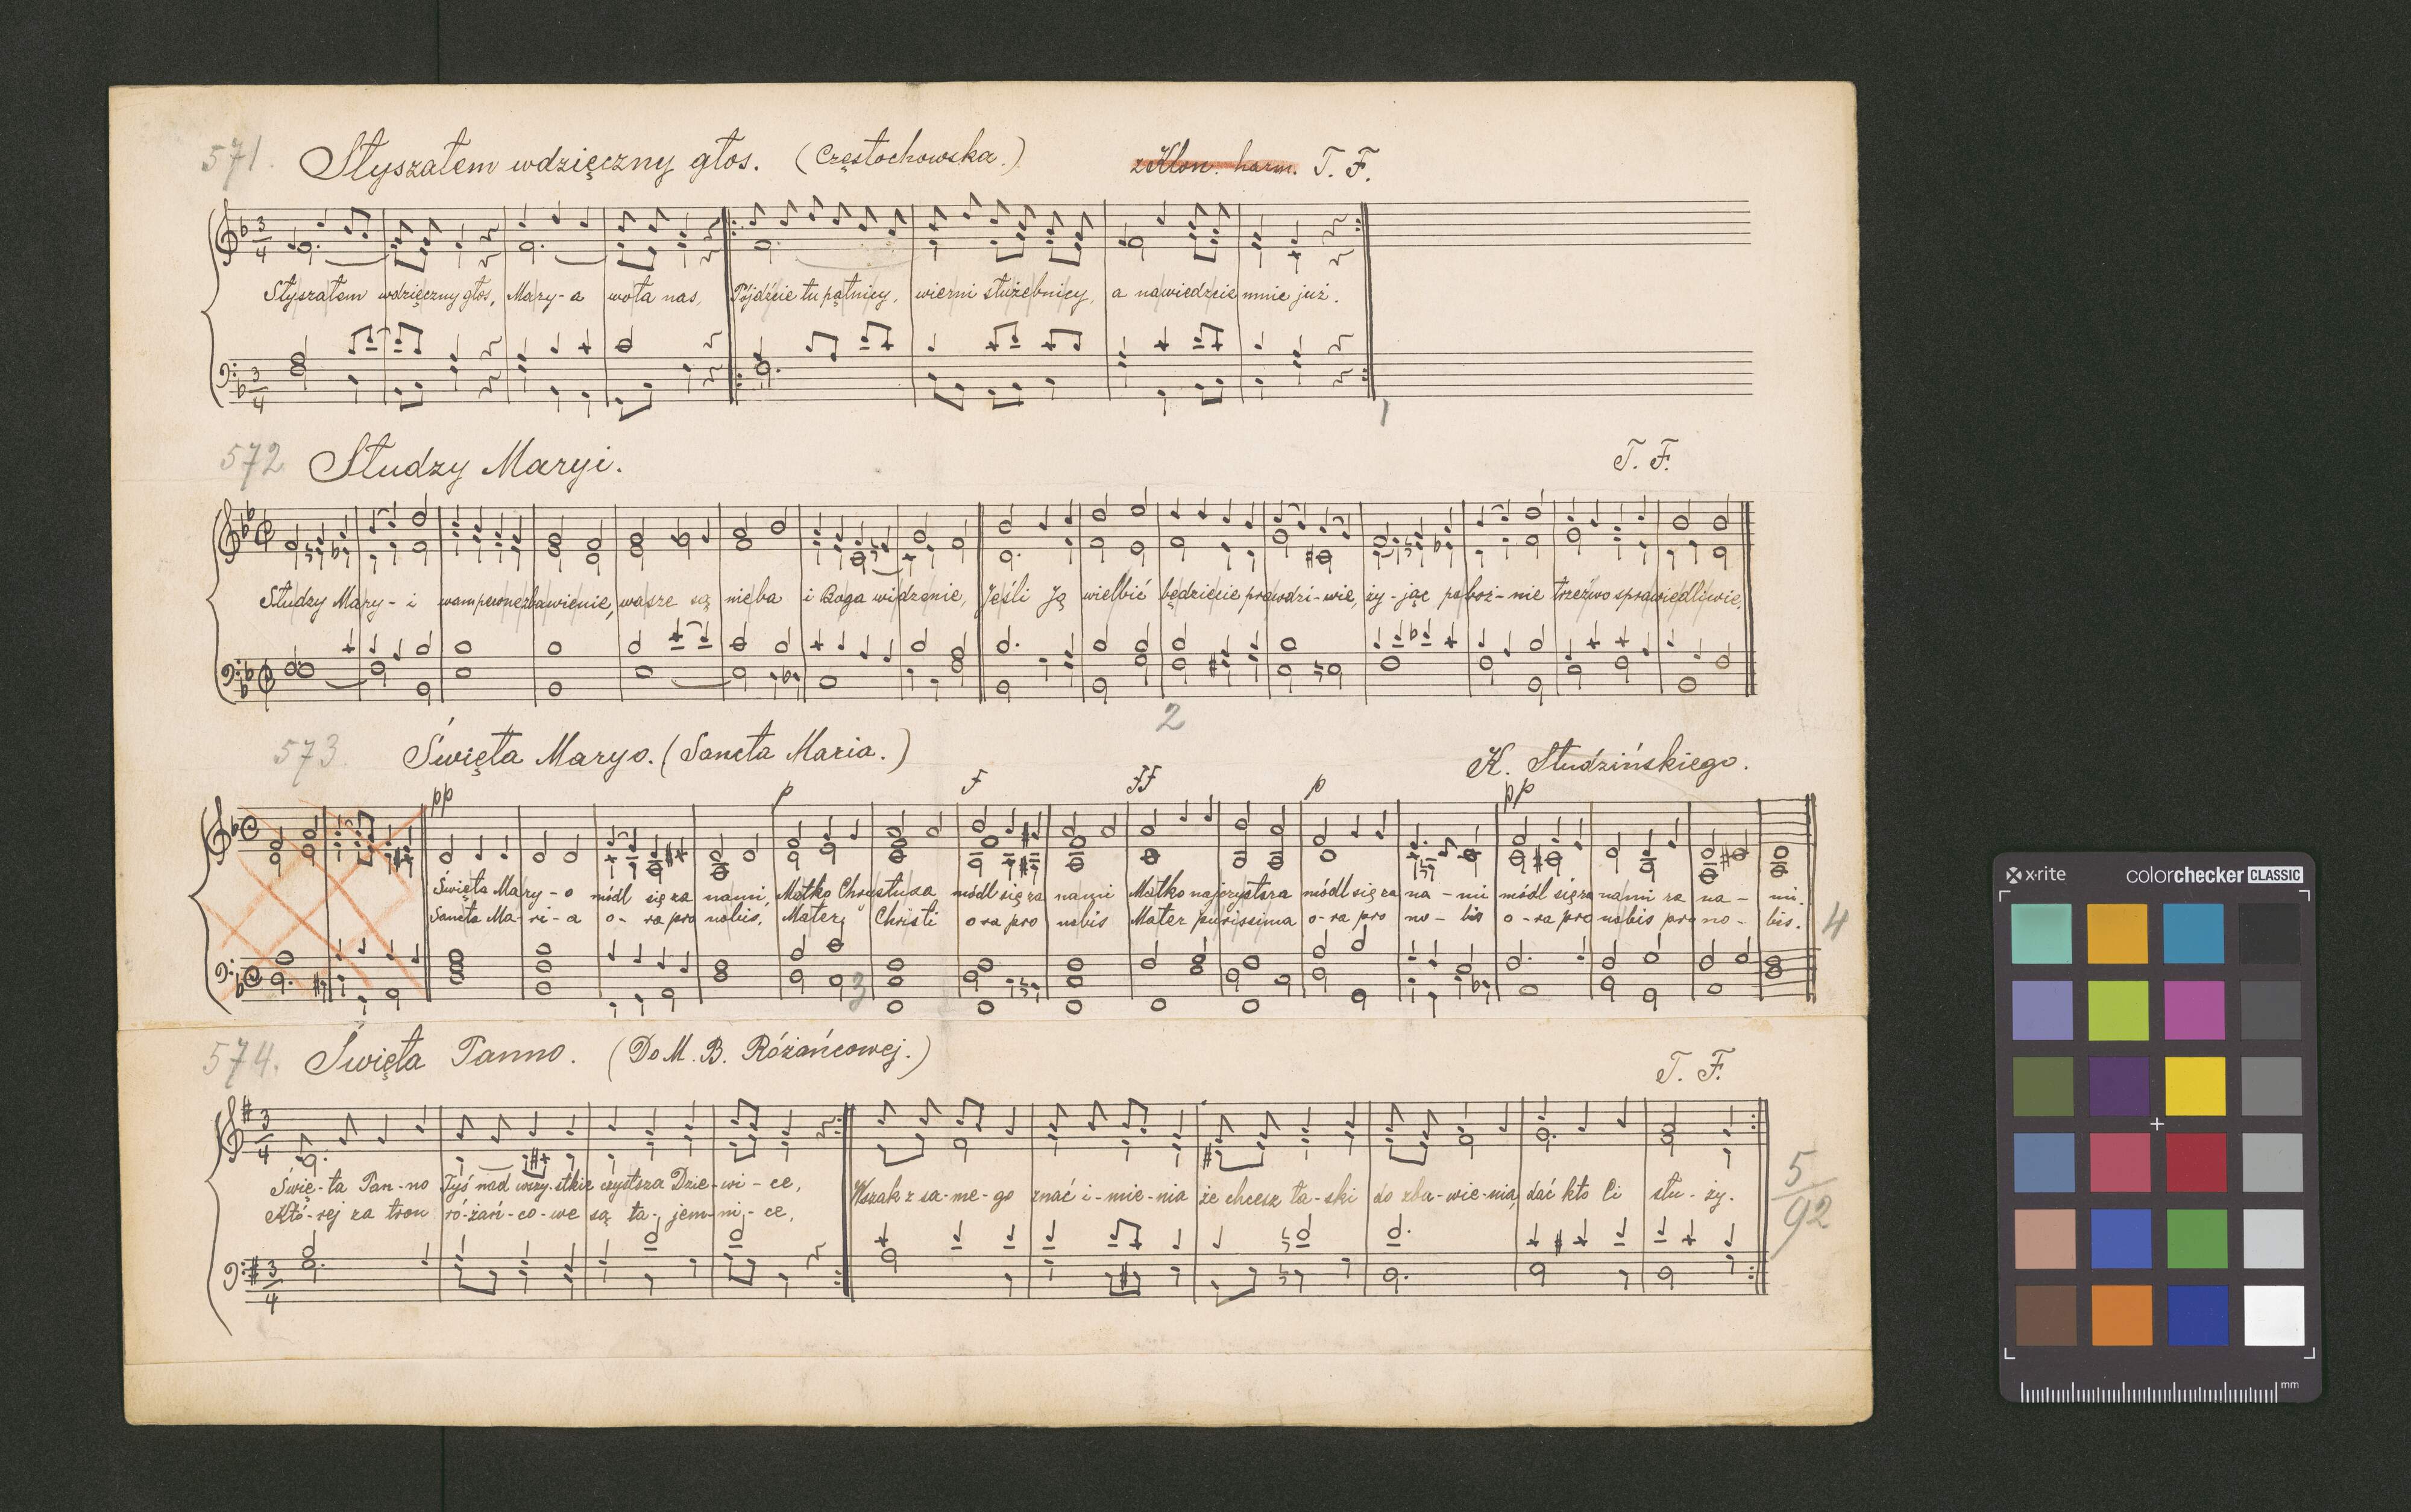 571. Słyszałem wdzięczny głos. (Częstochowska.) z Klon. harm. T. F.
3/4
Słyszałem wdzięczny głos, Mary-a woła nas, Pójdźcie tu pątnicy, wierni służebnicy, a nawiedzcie mnie już.
3/4
1
572 Słudzy Maryi. T. F.
Słudzy Mary-i wam pewne zbawienie, wasze są nieba i Boga widzenie, Jeśli Ją wielbić będziecie prawdzi-wie, ży-jąc poboż-nie trzeźwo sprawiedliwie.
2
573 Święta Maryo. (Sancta Maria.) K. Studzińskiego.
pp p F FF p pp
Święta Ma-ry-o módl się za nami, Matko Chrystusa módl się za nami Matko najczystsza módl się za na-mi módl się za nami za na-mi.
Sancta Ma-ri-a o-ra pro nobis, Mater Christi o-ra pro nobis Mater purissima o-ra pro no-bis o-ra pro nobis pro no-bis.
4
3
574. Święta Panno. (Do M. B. Różańcowej.) T. F.
3/4
Świę-ta Pan-no Tyś nad wszy-stkie czystsza Dzie-wi-ce, Wszak z sa-me-go znać i-mie-nia że chcesz ła-ski do zba-wie-nia, dać kto Ci słu-ży.
Któ-rej za tron ró-żań-co-we są ta-jem-ni-ce,
5/92
3/4
x-rite colorchecker CLASSIC
mm